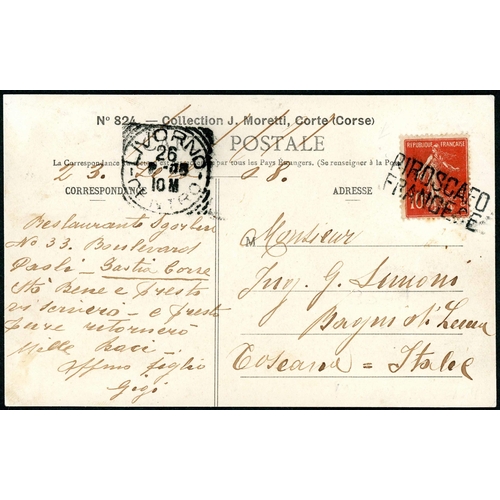 Nº 824. — Collection J. Moretti, Corte (Corse)
POSTALE
La Correspondance au par tous les Pays Étrangers. (Se renseigner à la Poste
CORRESPONDANCE
ADRESSE
LIVORNO
26
10 M
CENTRO
REPUBLIQUE FRANÇAISE
10
PIROSCAFO
FRANCESE
23. 08.
Restaurant
No 33. Boulevard
Paoli – Bastia Corse
Stò Bene e presto
vi scriverò – e presto
pure ritornerò
Mille Baci –
Affmo figlio
Gigi
M Monsieur
Ing. G. Simoni
Bagni di
Toscana = Italie